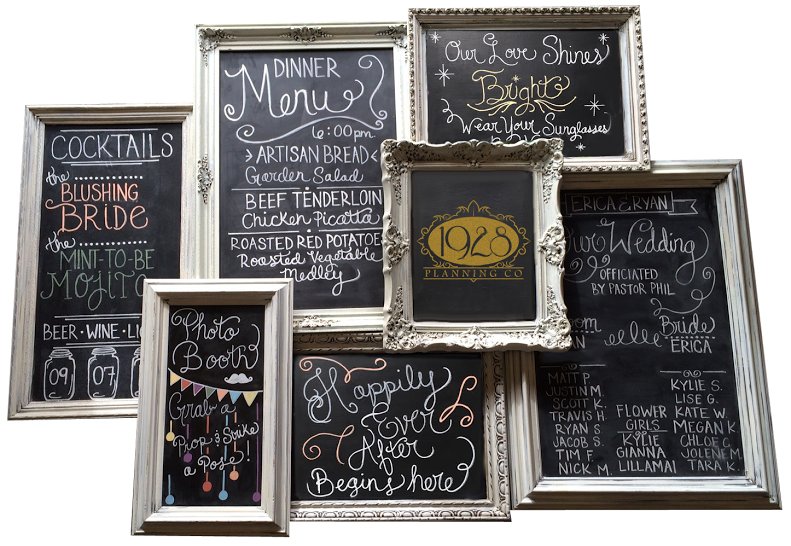 COCKTAILS
the
BLUSHING
BRIDE
the
MINT-TO-BE
BEER · WINE
09
07
DINNER
Menu
6:00pm.
ARTISAN BREAD
Garden Salad
BEEF TENDERLOIN
Chicken Picatta
ROASTED RED POTATOE
Roasted Vegetable
Medley
Our Love Shines
Bright
Wear Your Sunglasses
1928
PLANNING CO
ERICA & RYAN
Wedding
OFFICIATED
BY PASTOR PHIL
Bride
ERICA
MATT P.
JUSTIN M.
SCOTT K.
TRAVIS H
RYAN S
JACOB S.
TIM F.
NICK M.
FLOWER
GIRLS
KYLIE
GIANNA
LILLAMAI
KYLIE S.
LISE G.
KATE W.
MEGAN K
CHLOE C.
JOLENE M.
TARA K.
Photo
Booth
Grab a
Prop & Strike
a Pose!
Happily
Ever
After
Begins here